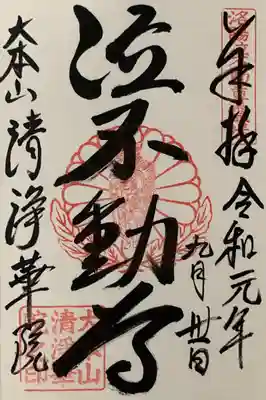 奉拝 令和元年
九月廿日
泣不動尊
大本山清浄華院
大本山
清浄華
院印